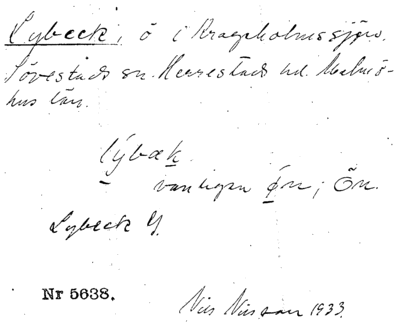 Lybeck, ö i Krageholmssjön.
Sövestads sn. Herrestads hd. Malmö-
hus län.
lýbæk
vanligen ǿn, Ön.
Lybeck Y.
Nr 5638.
Nils Nilsson 1933.